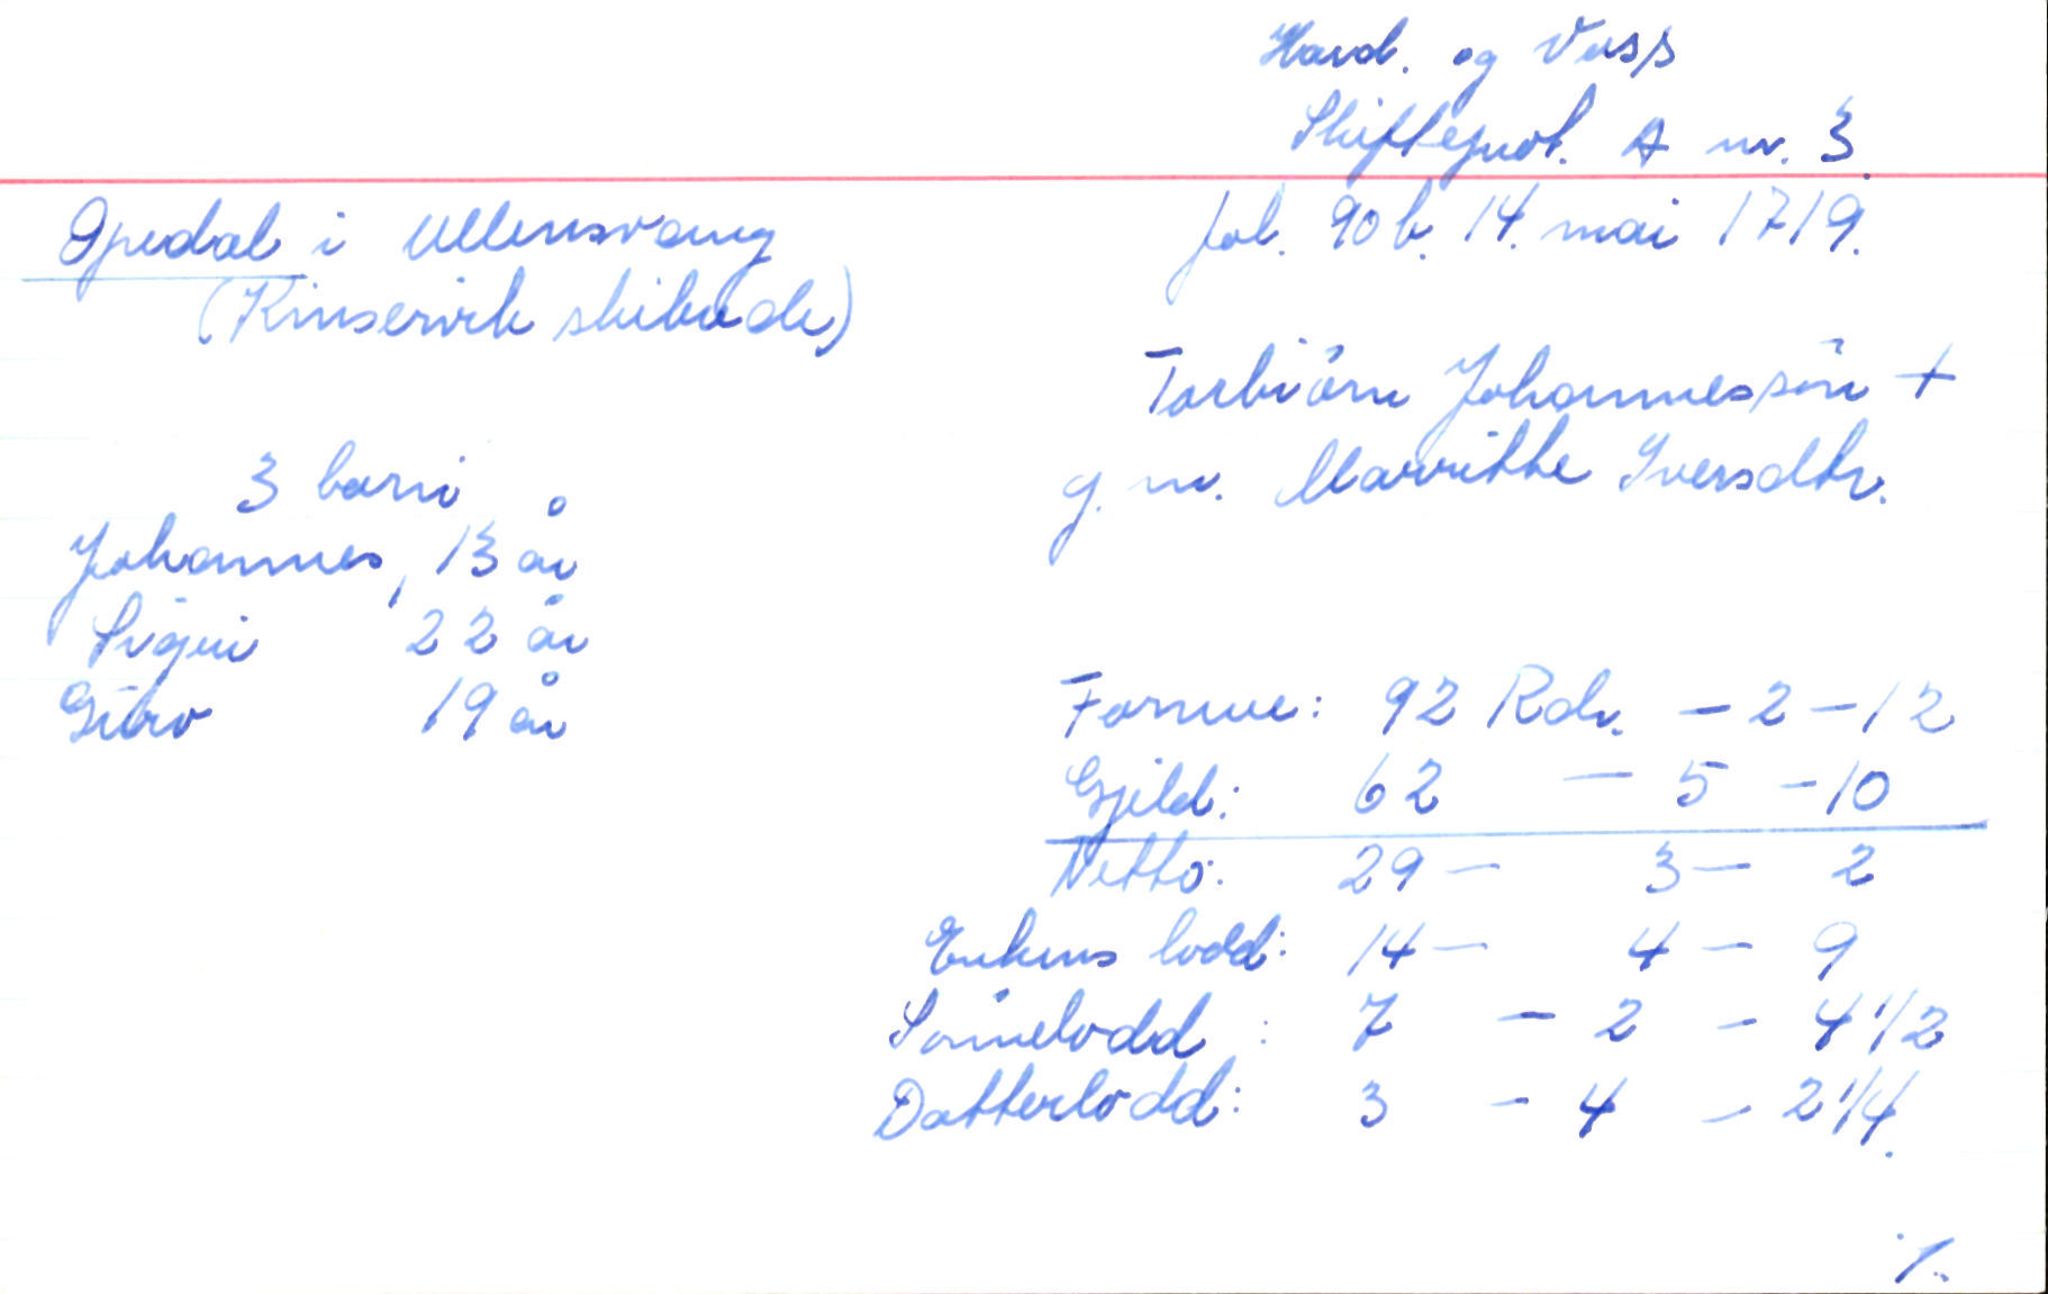 Hard. og Voss
Skifteprot. A nr. 3
fol. 90 b. 14. mai 1719.
Opedal i Ullensvang
(Kinservik skibrede)
Torbiörn Johannessön +
g. m. Marritte Iversdtr.
3 barn
Johannes, 13 år
Sigri 22 år
Guro 19 år
Formue: 92 Rdr. - 2 - 12
Gjeld: 62 - 5 - 10
Netto: 29 - 3 - 2
Enkens lodd: 14 - 4 - 9
Sönnelodd : 7 - 2 - 4 1/2
Datterlodd: 3 - 4 - 2 1/4.